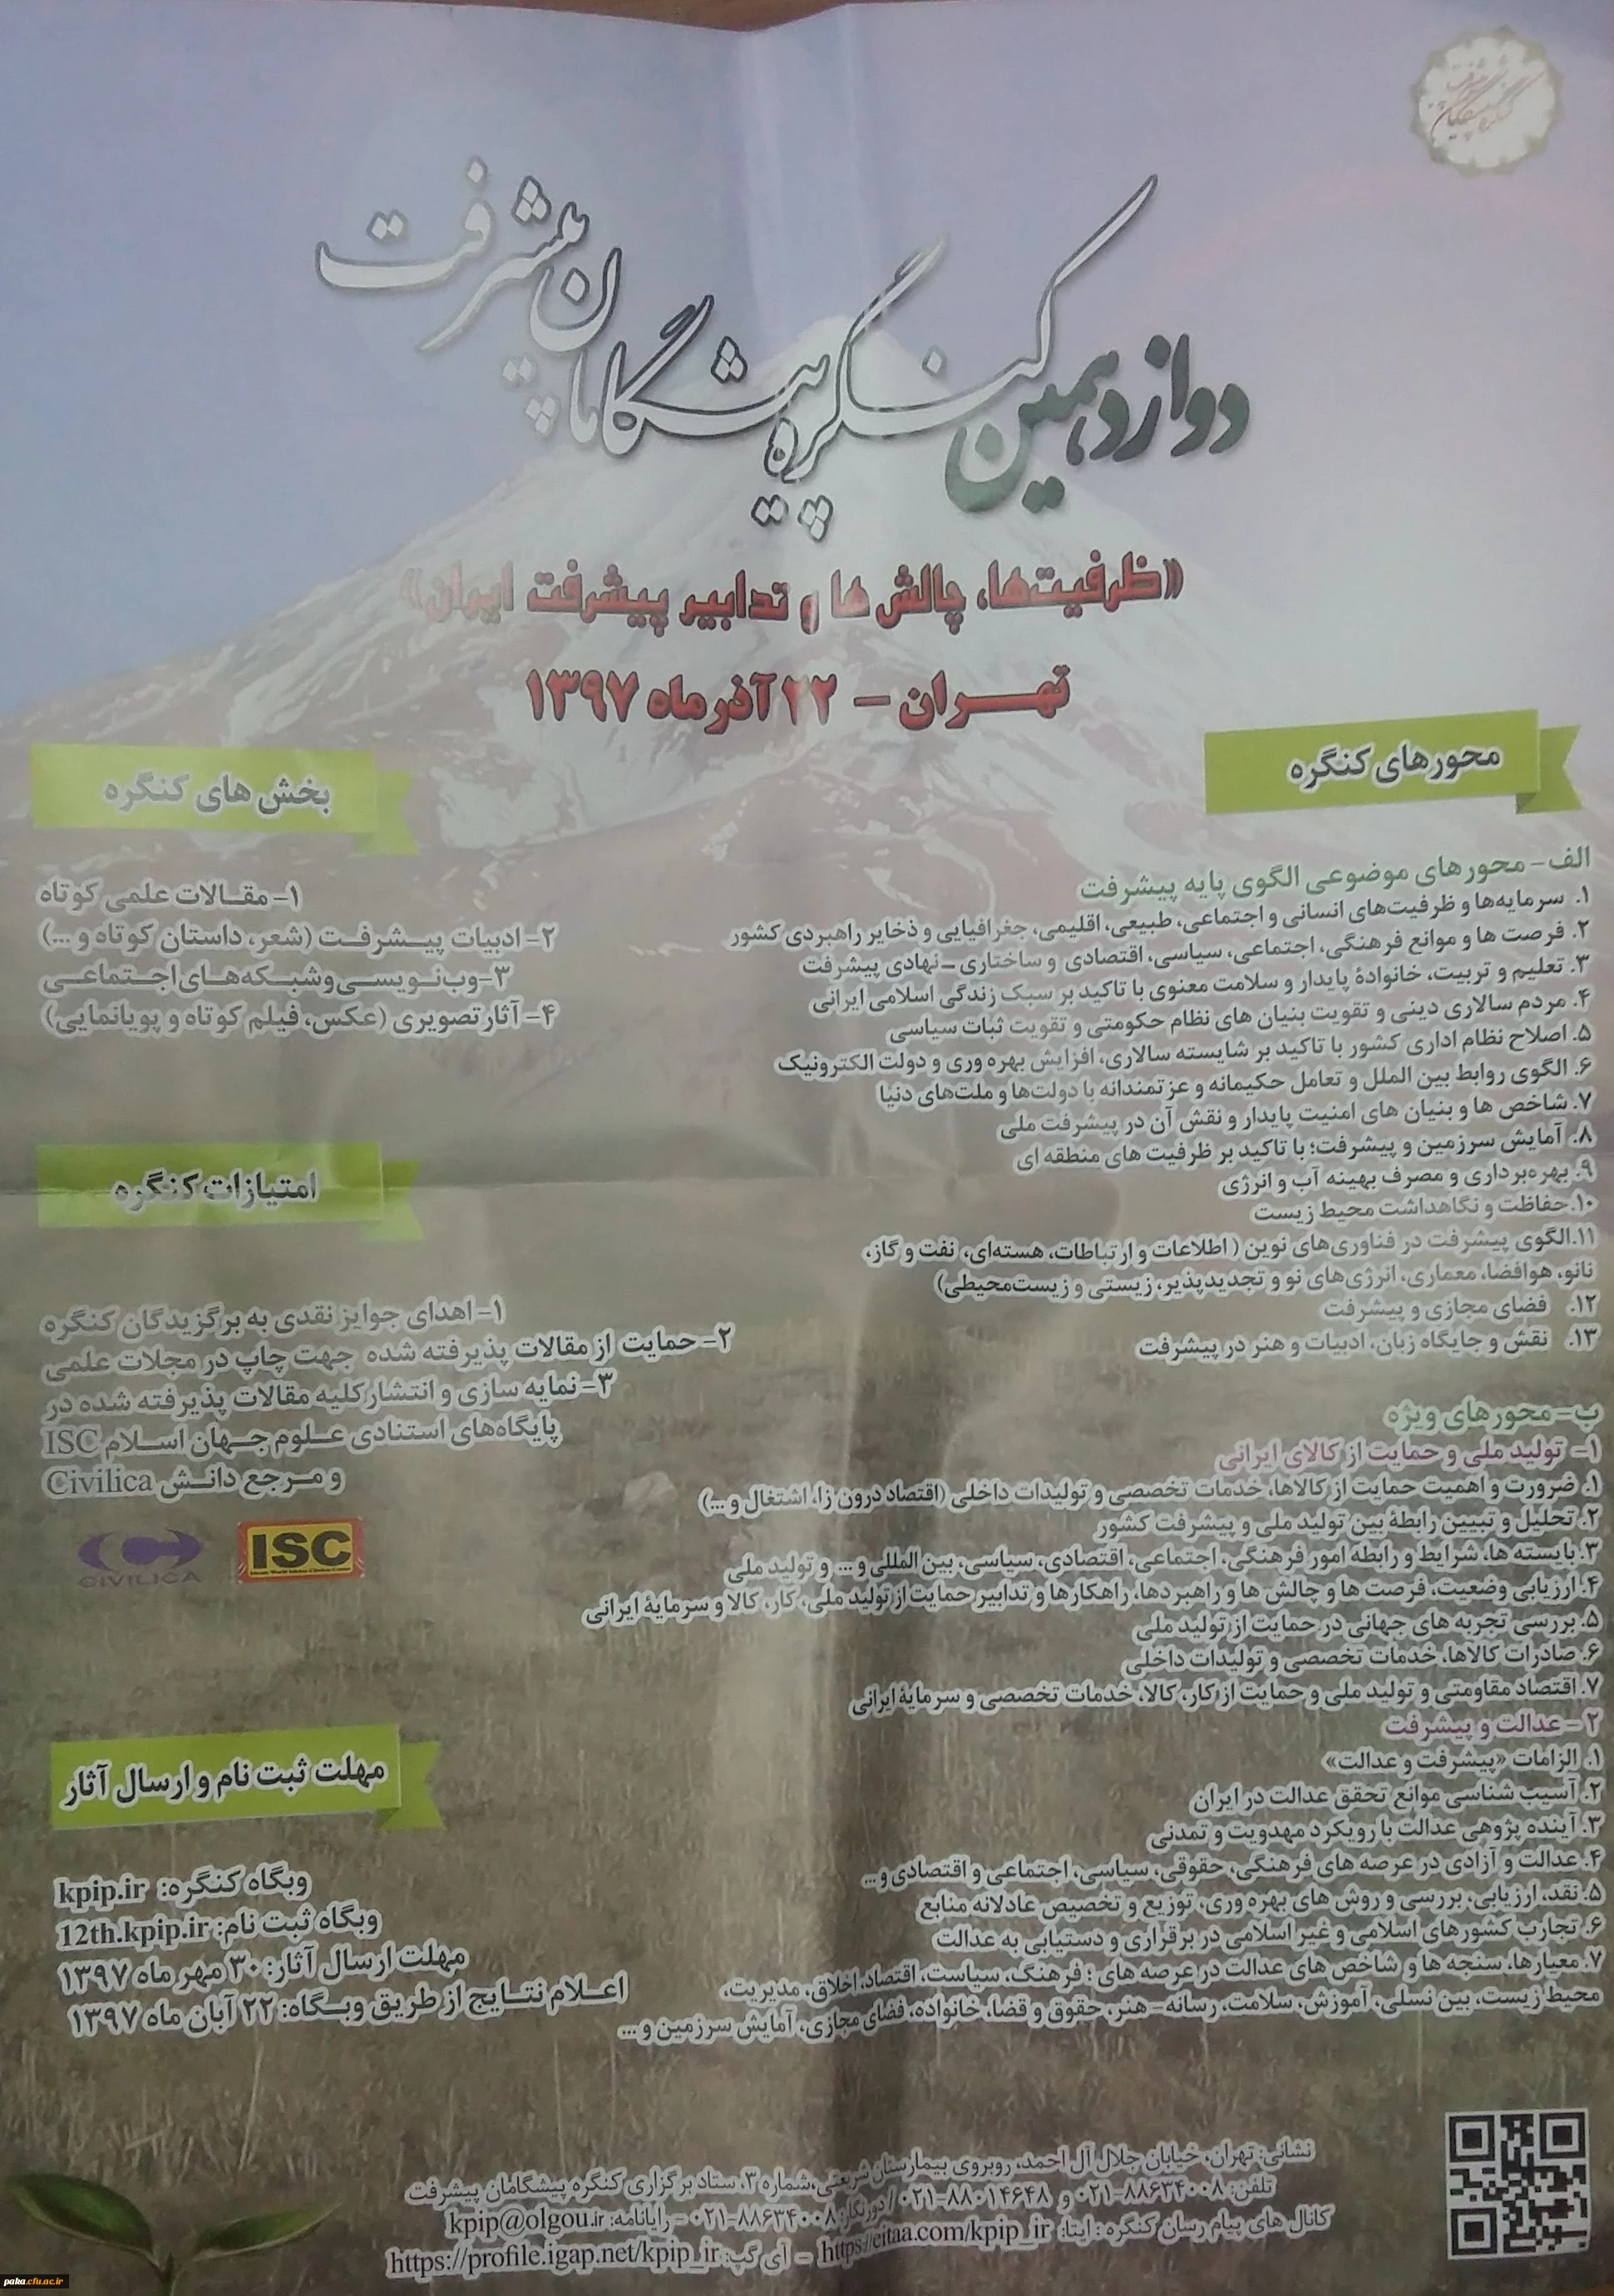 دوازدهمین کنگره پیشگامان پیشرفت
«ظرفیت‌ها، چالش ها و تدابیر پیشرفت ایران»
تهران - ۲۲ آذر ماه ۱۳۹۷
محورهای کنگره
الف- محورهای موضوعی الگوی پایه پیشرفت
۱. سرمایه‌ها و ظرفیت‌های انسانی و اجتماعی، طبیعی، اقلیمی، جغرافیایی و ذخایر راهبردی کشور
۲. فرصت ها و موانع فرهنگی، اجتماعی، سیاسی، اقتصادی و ساختاری - نهادی پیشرفت
۳. تعلیم و تربیت، خانوادهٔ پایدار و سلامت معنوی با تاکید بر سبک زندگی اسلامی ایرانی
۴. مردم سالاری دینی و تقویت بنیان های نظام حکومتی و تقویت ثبات سیاسی
۵. اصلاح نظام اداری کشور با تاکید بر شایسته سالاری، افزایش بهره وری و دولت الکترونیک
۶. الگوی روابط بین الملل و تعامل حکیمانه و عزتمندانه با دولت‌ها و ملت‌های دنیا
۷. شاخص ها و بنیان های امنیت پایدار و نقش آن در پیشرفت ملی
۸. آمایش سرزمین و پیشرفت؛ با تاکید بر ظرفیت های منطقه ای
۹. بهره‌برداری و مصرف بهینه آب و انرژی
۱۰. حفاظت و نگاهداشت محیط زیست
۱۱. الگوی پیشرفت در فناوری‌های نوین ( اطلاعات و ارتباطات، هسته‌ای، نفت و گاز،
نانو، هوافضا، معماری، انرژی‌های نو و تجدیدپذیر، زیستی و زیست‌محیطی)
۱۲. فضای مجازی و پیشرفت
۱۳. نقش و جایگاه زبان، ادبیات و هنر در پیشرفت
ب- محورهای ویژه
۱- تولید ملی و حمایت از کالای ایرانی
۱. ضرورت و اهمیت حمایت از کالاها، خدمات تخصصی و تولیدات داخلی (اقتصاد درون زا، اشتغال و ...)
۲. تحلیل و تبیین رابطهٔ بین تولید ملی و پیشرفت کشور
۳. بایسته ها، شرایط و رابطه امور فرهنگی، اجتماعی، اقتصادی، سیاسی، بین المللی و ... و تولید ملی
۴. ارزیابی وضعیت، فرصت ها و چالش ها و راهبردها، راهکارها و تدابیر حمایت از تولید ملی، کار، کالا و سرمایهٔ ایرانی
۵. بررسی تجربه های جهانی در حمایت از تولید ملی
۶. صادرات کالاها، خدمات تخصصی و تولیدات داخلی
۷. اقتصاد مقاومتی و تولید ملی و حمایت از کار، کالا، خدمات تخصصی و سرمایهٔ ایرانی
۲- عدالت و پیشرفت
۱. الزامات «پیشرفت و عدالت»
۲. آسیب شناسی موانع تحقق عدالت در ایران
۳. آینده پژوهی عدالت با رویکرد مهدویت و تمدنی
۴. عدالت و آزادی در عرصه های فرهنگی، حقوقی، سیاسی، اجتماعی و اقتصادی و...
۵. نقد، ارزیابی، بررسی و روش های بهره وری، توزیع و تخصیص عادلانه منابع
۶. تجارب کشورهای اسلامی و غیر اسلامی در برقراری و دستیابی به عدالت
۷. معیارها، سنجه ها و شاخص های عدالت در عرصه های ؛ فرهنگ، سیاست، اقتصاد، اخلاق، مدیریت،
محیط زیست، بین نسلی، آموزش، سلامت، رسانه- هنر، حقوق و قضا، خانواده، فضای مجازی، آمایش سرزمین و ...
بخش های کنگره
۱- مقالات علمی کوتاه
۲- ادبیات پیشرفت (شعر، داستان کوتاه و ...)
۳- وب‌نویسی و شبکه‌های اجتماعی
۴- آثار تصویری (عکس، فیلم کوتاه و پویانمایی)
امتیازات کنگره
۱- اهدای جوایز نقدی به برگزیدگان کنگره
۲- حمایت از مقالات پذیرفته شده جهت چاپ در مجلات علمی
۳- نمایه سازی و انتشار کلیه مقالات پذیرفته شده در
پایگاه‌های استنادی علوم جهان اسلام ISC
و مرجع دانش Civilica
CIVILICA
ISC
مهلت ثبت نام و ارسال آثار
وبگاه کنگره: kpip.ir
وبگاه ثبت نام: 12th.kpip.ir
مهلت ارسال آثار: ۳۰ مهر ماه ۱۳۹۷
اعلام نتایج از طریق وبگاه: ۲۲ آبان ماه ۱۳۹۷
نشانی: تهران، خیابان جلال آل احمد، روبروی بیمارستان شریعتی، شماره ۳، ستاد برگزاری کنگره پیشگامان پیشرفت
تلفن: ۸۸۶۳۴۰۰۸-۰۲۱ و ۸۸۰۱۴۶۴۸-۰۲۱ / دورنگار: ۸۸۶۳۴۰۰۸-۰۲۱ - رایانامه: kpip@olgou.ir
کانال های پیام رسان کنگره : ایتا: https://eitaa.com/kpip_ir - آی گپ: https://profile.igap.net/kpip_ir
paka.cfu.ac.ir